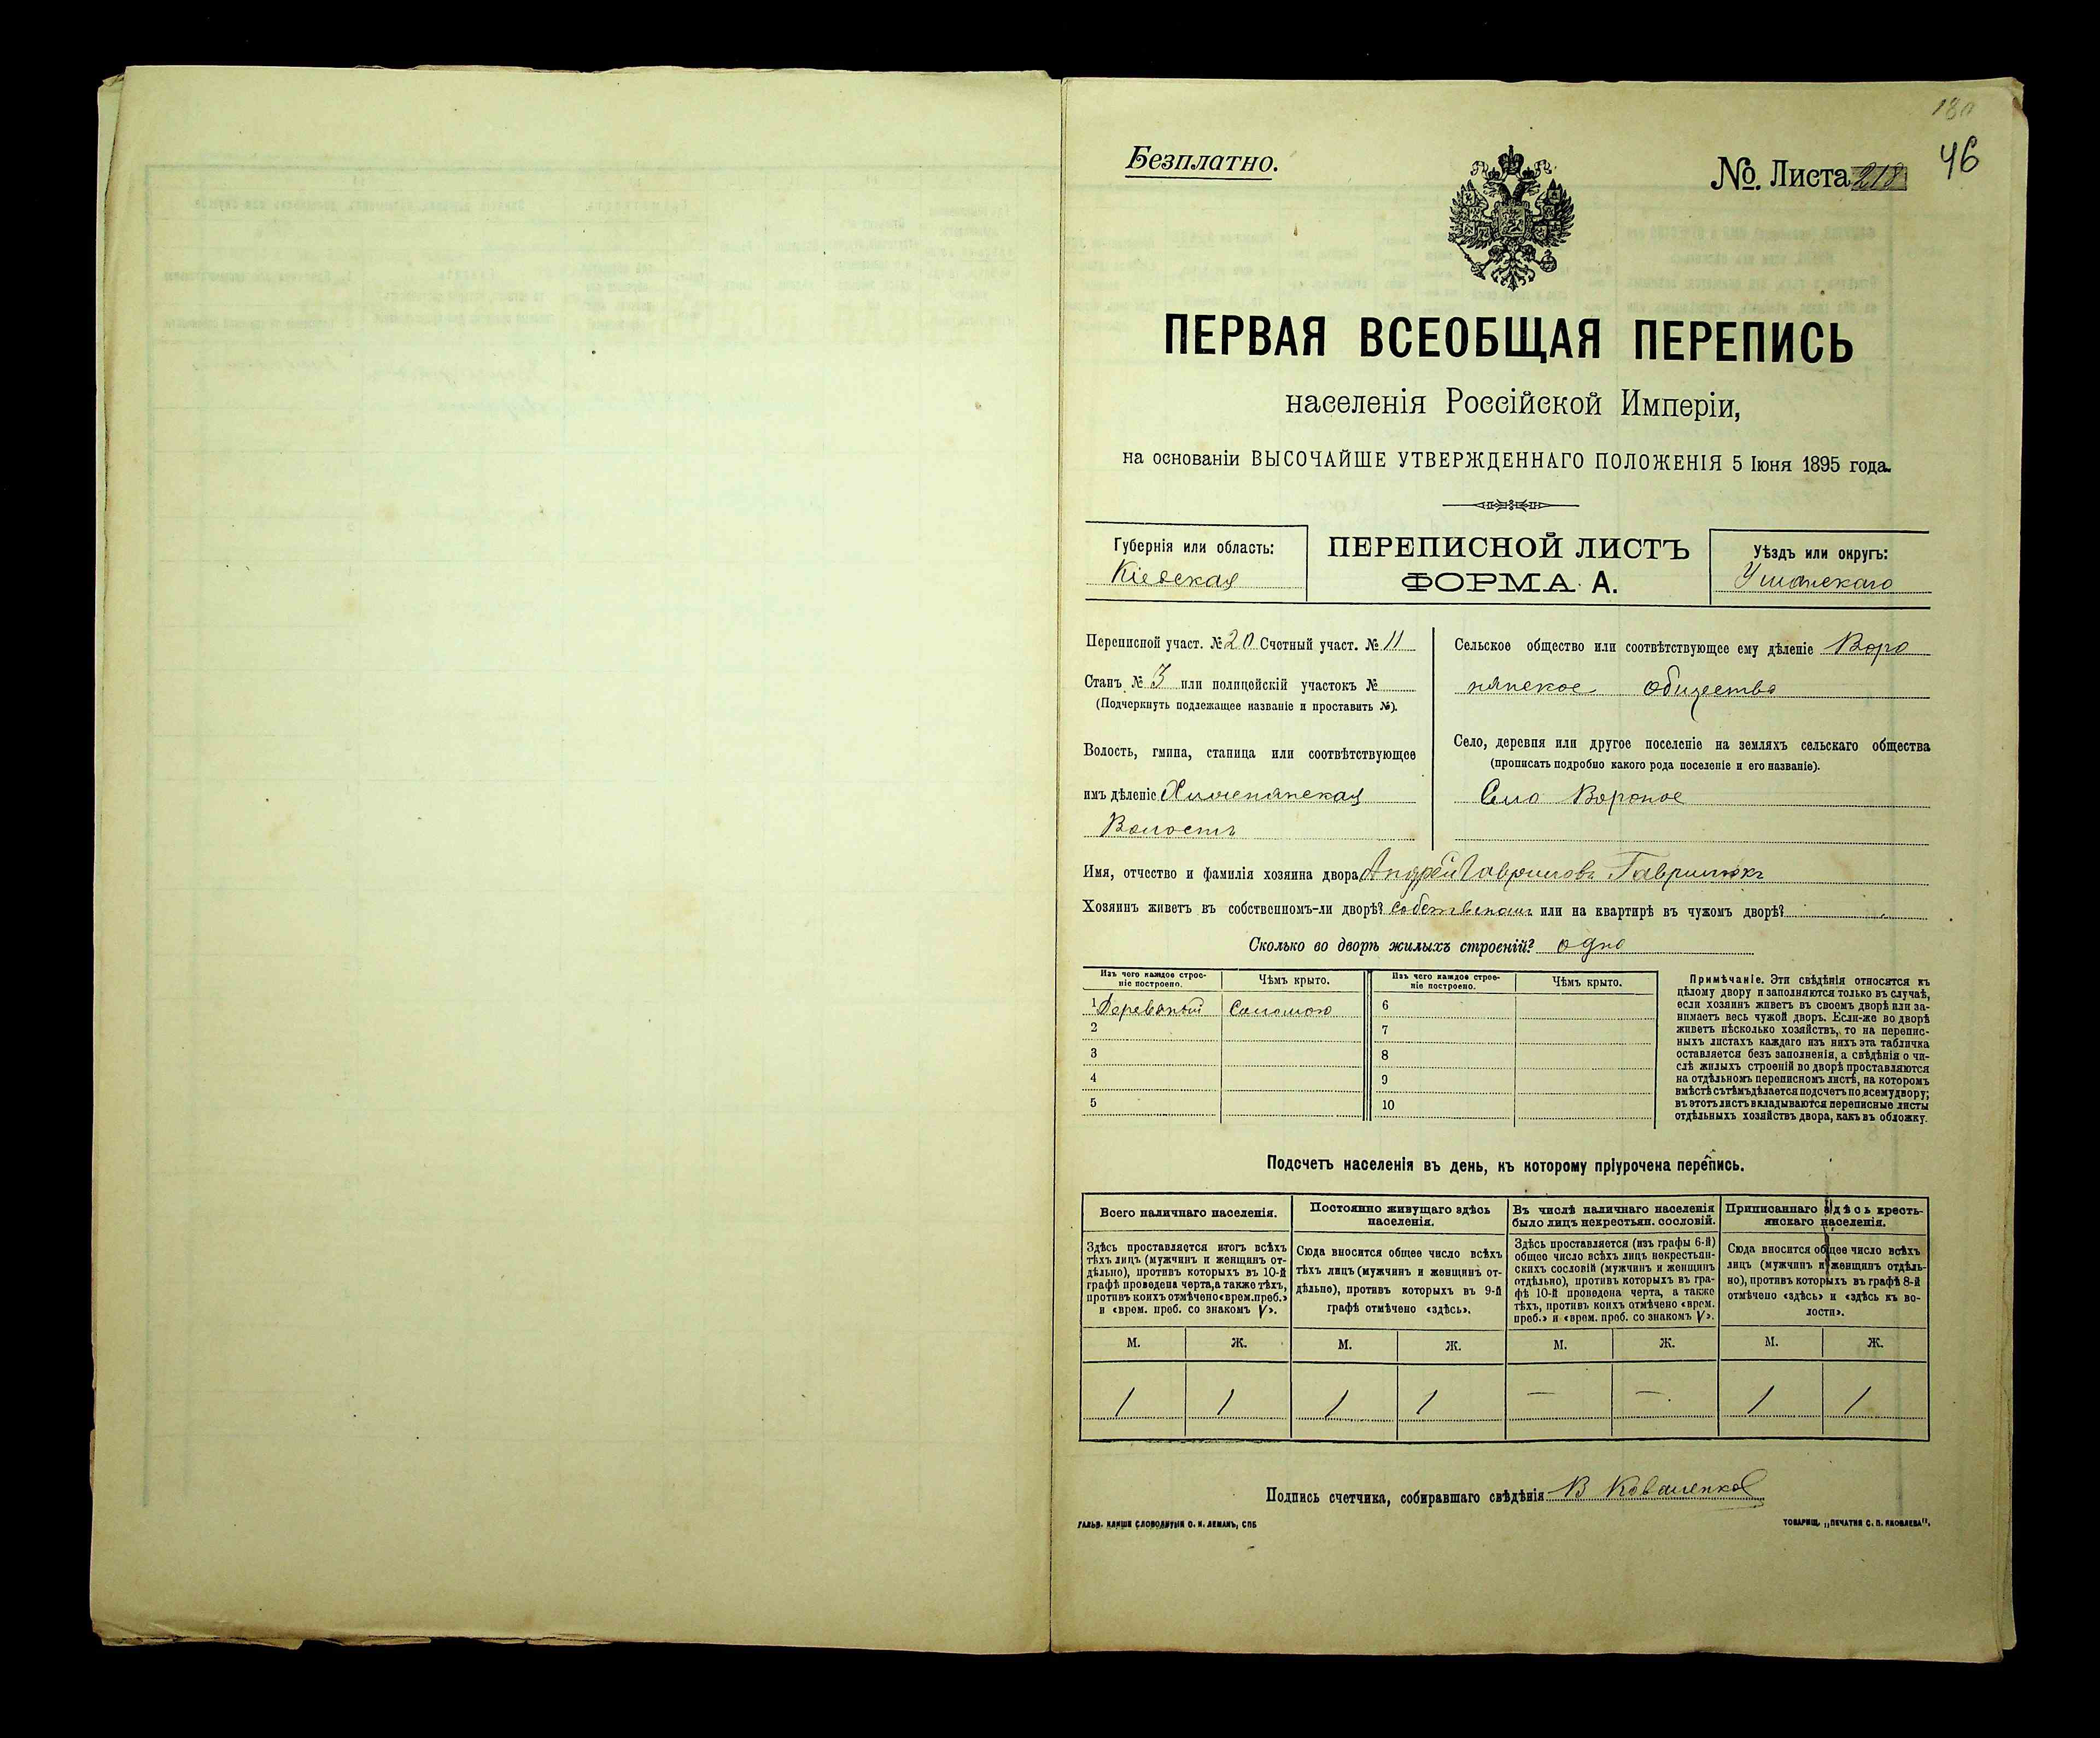 180
46
Безплатно.
№. Листа 218
ПЕРВАЯ ВСЕОБЩАЯ ПЕРЕПИСЬ
населенія Россійской Имперіи,
на основаніи ВЫСОЧАЙШЕ УТВЕРЖДЕННАГО ПОЛОЖЕНІЯ 5 Іюня 1895 года.
Губернія или область:
Кіевская
ПЕРЕПИСНОЙ ЛИСТЪ
ФОРМА А.
Уѣздъ или округъ:
Уманскаго
Переписной участ. № 20 Счетный участ. № 11
Станъ № 3 или полицейскій участокъ №
(Подчеркнуть подлежащее названіе и проставить №).
Волость, гмина, станица или соотвѣтствующее
имъ дѣленіе Хижнянская
Волость
Сельское общество или соотвѣтствующее ему дѣленіе Воро
нянское общество
Село, деревня или другое поселеніе на земляхъ сельскаго общества
(прописать подробно какого рода поселеніе и его названіе).
Село Вороное
Имя, отчество и фамилія хозяина двора Андрей Гавриловъ Гаврилюкъ
Хозяинъ живетъ въ собственномъ-ли дворѣ? собственомъ или на квартирѣ въ чужомъ дворѣ?
Сколько во дворѣ жилыхъ строеній? одно
Изъ чего каждое строе-
ніе построено.
Чѣмъ крыто.
Изъ чего каждое строе-
ніе построено.
Чѣмъ крыто.
1 Деревяный Соломою
2
3
4
5
6
7
8
9
10
Примѣчаніе. Эти свѣдѣнія относятся къ
цѣлому двору и заполняются только въ случаѣ,
если хозяинъ живетъ въ своемъ дворѣ или за-
нимаетъ весь чужой дворъ. Если-же во дворѣ
живетъ нѣсколько хозяйствъ, то на перепис-
ныхъ листахъ каждаго изъ нихъ эта табличка
оставляется безъ заполненія, а свѣдѣнія о чи-
слѣ жилыхъ строеній во дворѣ проставляются
на отдѣльномъ переписномъ листѣ, на которомъ
вмѣстѣ съ тѣмъ дѣлается подсчетъ по всему двору;
въ этотъ листъ вкладываются переписные листы
отдѣльныхъ хозяйствъ двора, какъ въ обложку.
Подсчетъ населенія въ день, къ которому пріурочена перепись.
Всего наличнаго населенія.
Здѣсь проставляется итогъ всѣхъ
тѣхъ лицъ (мужчинъ и женщинъ от-
дѣльно), противъ которыхъ въ 10-й
графѣ проведена черта, а также тѣхъ,
противъ коихъ отмѣчено «врем. преб.»
и «врем. преб. со знакомъ V».
Постоянно живущаго здѣсь
населенія.
Сюда вносится общее число всѣхъ
тѣхъ лицъ (мужчинъ и женщинъ от-
дѣльно), противъ которыхъ въ 9-й
графѣ отмѣчено «здѣсь».
Въ числѣ наличнаго населенія
было лицъ некрестьян. сословій.
Здѣсь проставляется (изъ графы 6-й)
общее число всѣхъ лицъ некрестьян-
скихъ сословій (мужчинъ и женщинъ
отдѣльно), противъ которыхъ въ гра-
фѣ 10-й проведена черта, а также
тѣхъ, противъ коихъ отмѣчено «врем.
преб.» и «врем. преб. со знакомъ V».
Приписаннаго здѣсь кресть-
янскаго населенія.
Сюда вносится общее число всѣхъ
лицъ (мужчинъ и женщинъ отдѣль-
но), противъ которыхъ въ графѣ 8-й
отмѣчено «здѣсь» и «здѣсь къ во-
лости».
М. Ж. М. Ж. М. Ж. М. Ж.
1 1 1 1 — — 1 1
Подпись счетчика, собиравшаго свѣдѣнія В Коваленко
ГАЛЬВ. КЛИШЕ СЛОВОЛИТНИ О. И. ЛЕМАНЪ, СПБ
ТОВАРИЩ. „ПЕЧАТНЯ С. П. ЯКОВЛЕВА".